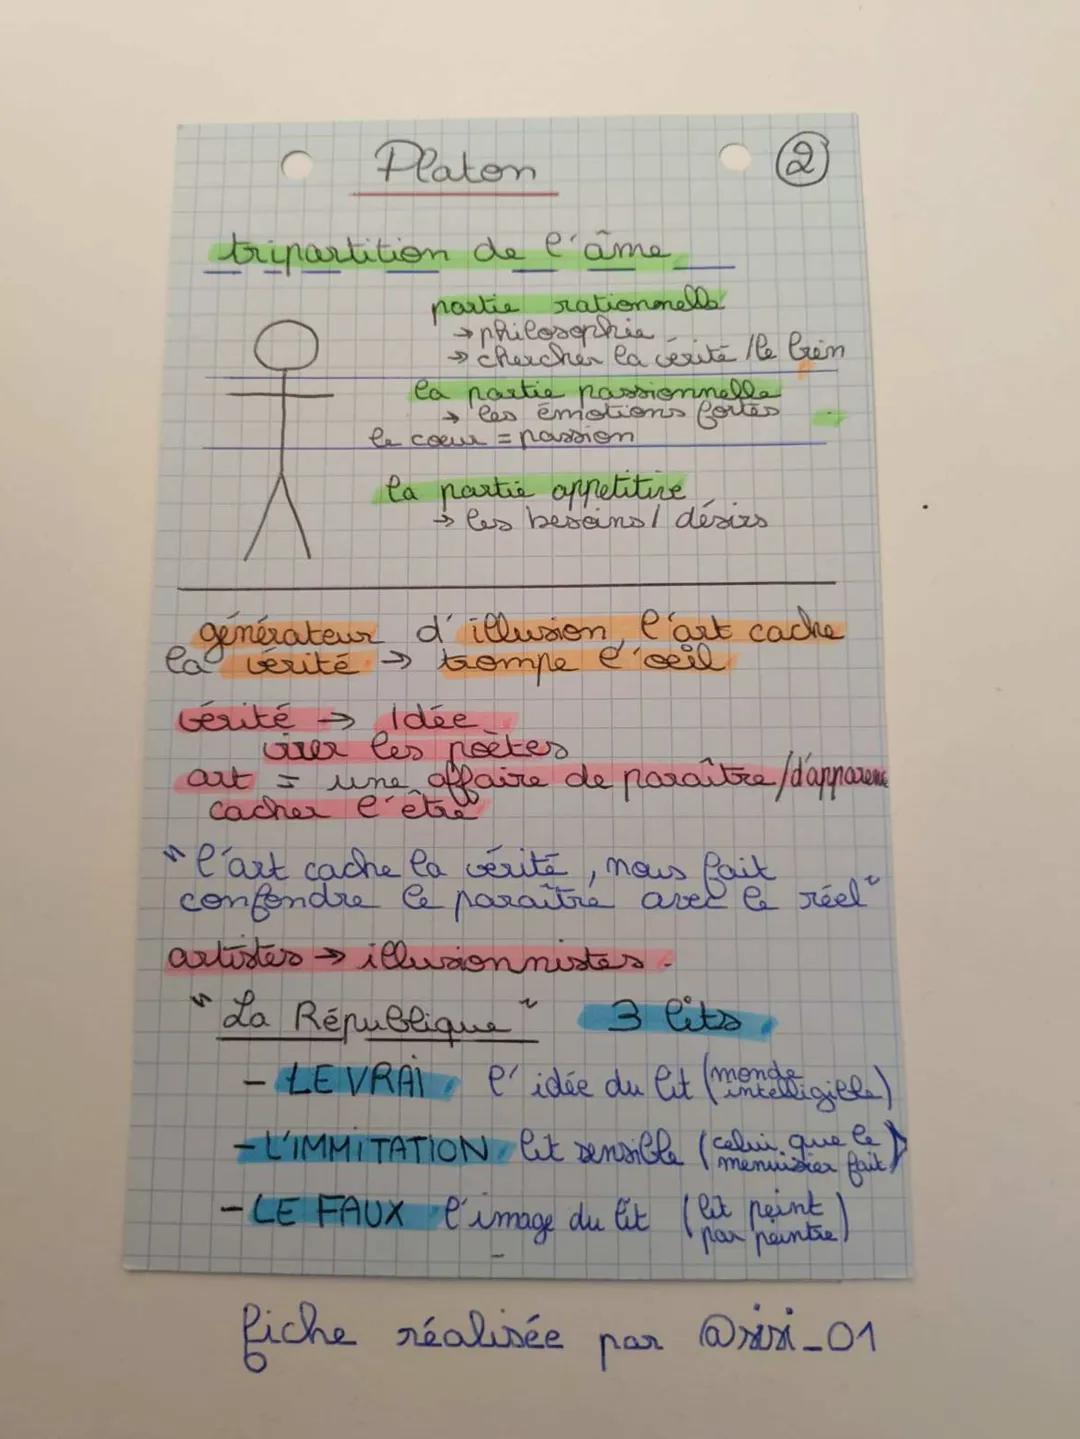 Platon
②
tripartition de l'âme
partie rationnnelle
→ philosophie
→ chercher la vérité / le bien
la partie passionnelle
→ les émotions fortes
le coeur = passion
la partie appetitive
→ les besoins / désirs
générateur d'illusion, l'art cache
la vérité → trompe l'oeil
vérité → Idée
virer les poètes
art = une affaire de paraître / d'apparence
cacher l'être
"l'art cache la vérité, nous fait
confondre le paraître avec le réel"
artistes → illusionnistes.
"La République" 3 lits
- LE VRAI l'idée du lit (monde intelligible)
- L'IMMITATION lit sensible (celui que le menuisier fait)
- LE FAUX l'image du lit (lit peint par peintre)
fiche réalisée par @sisi_01